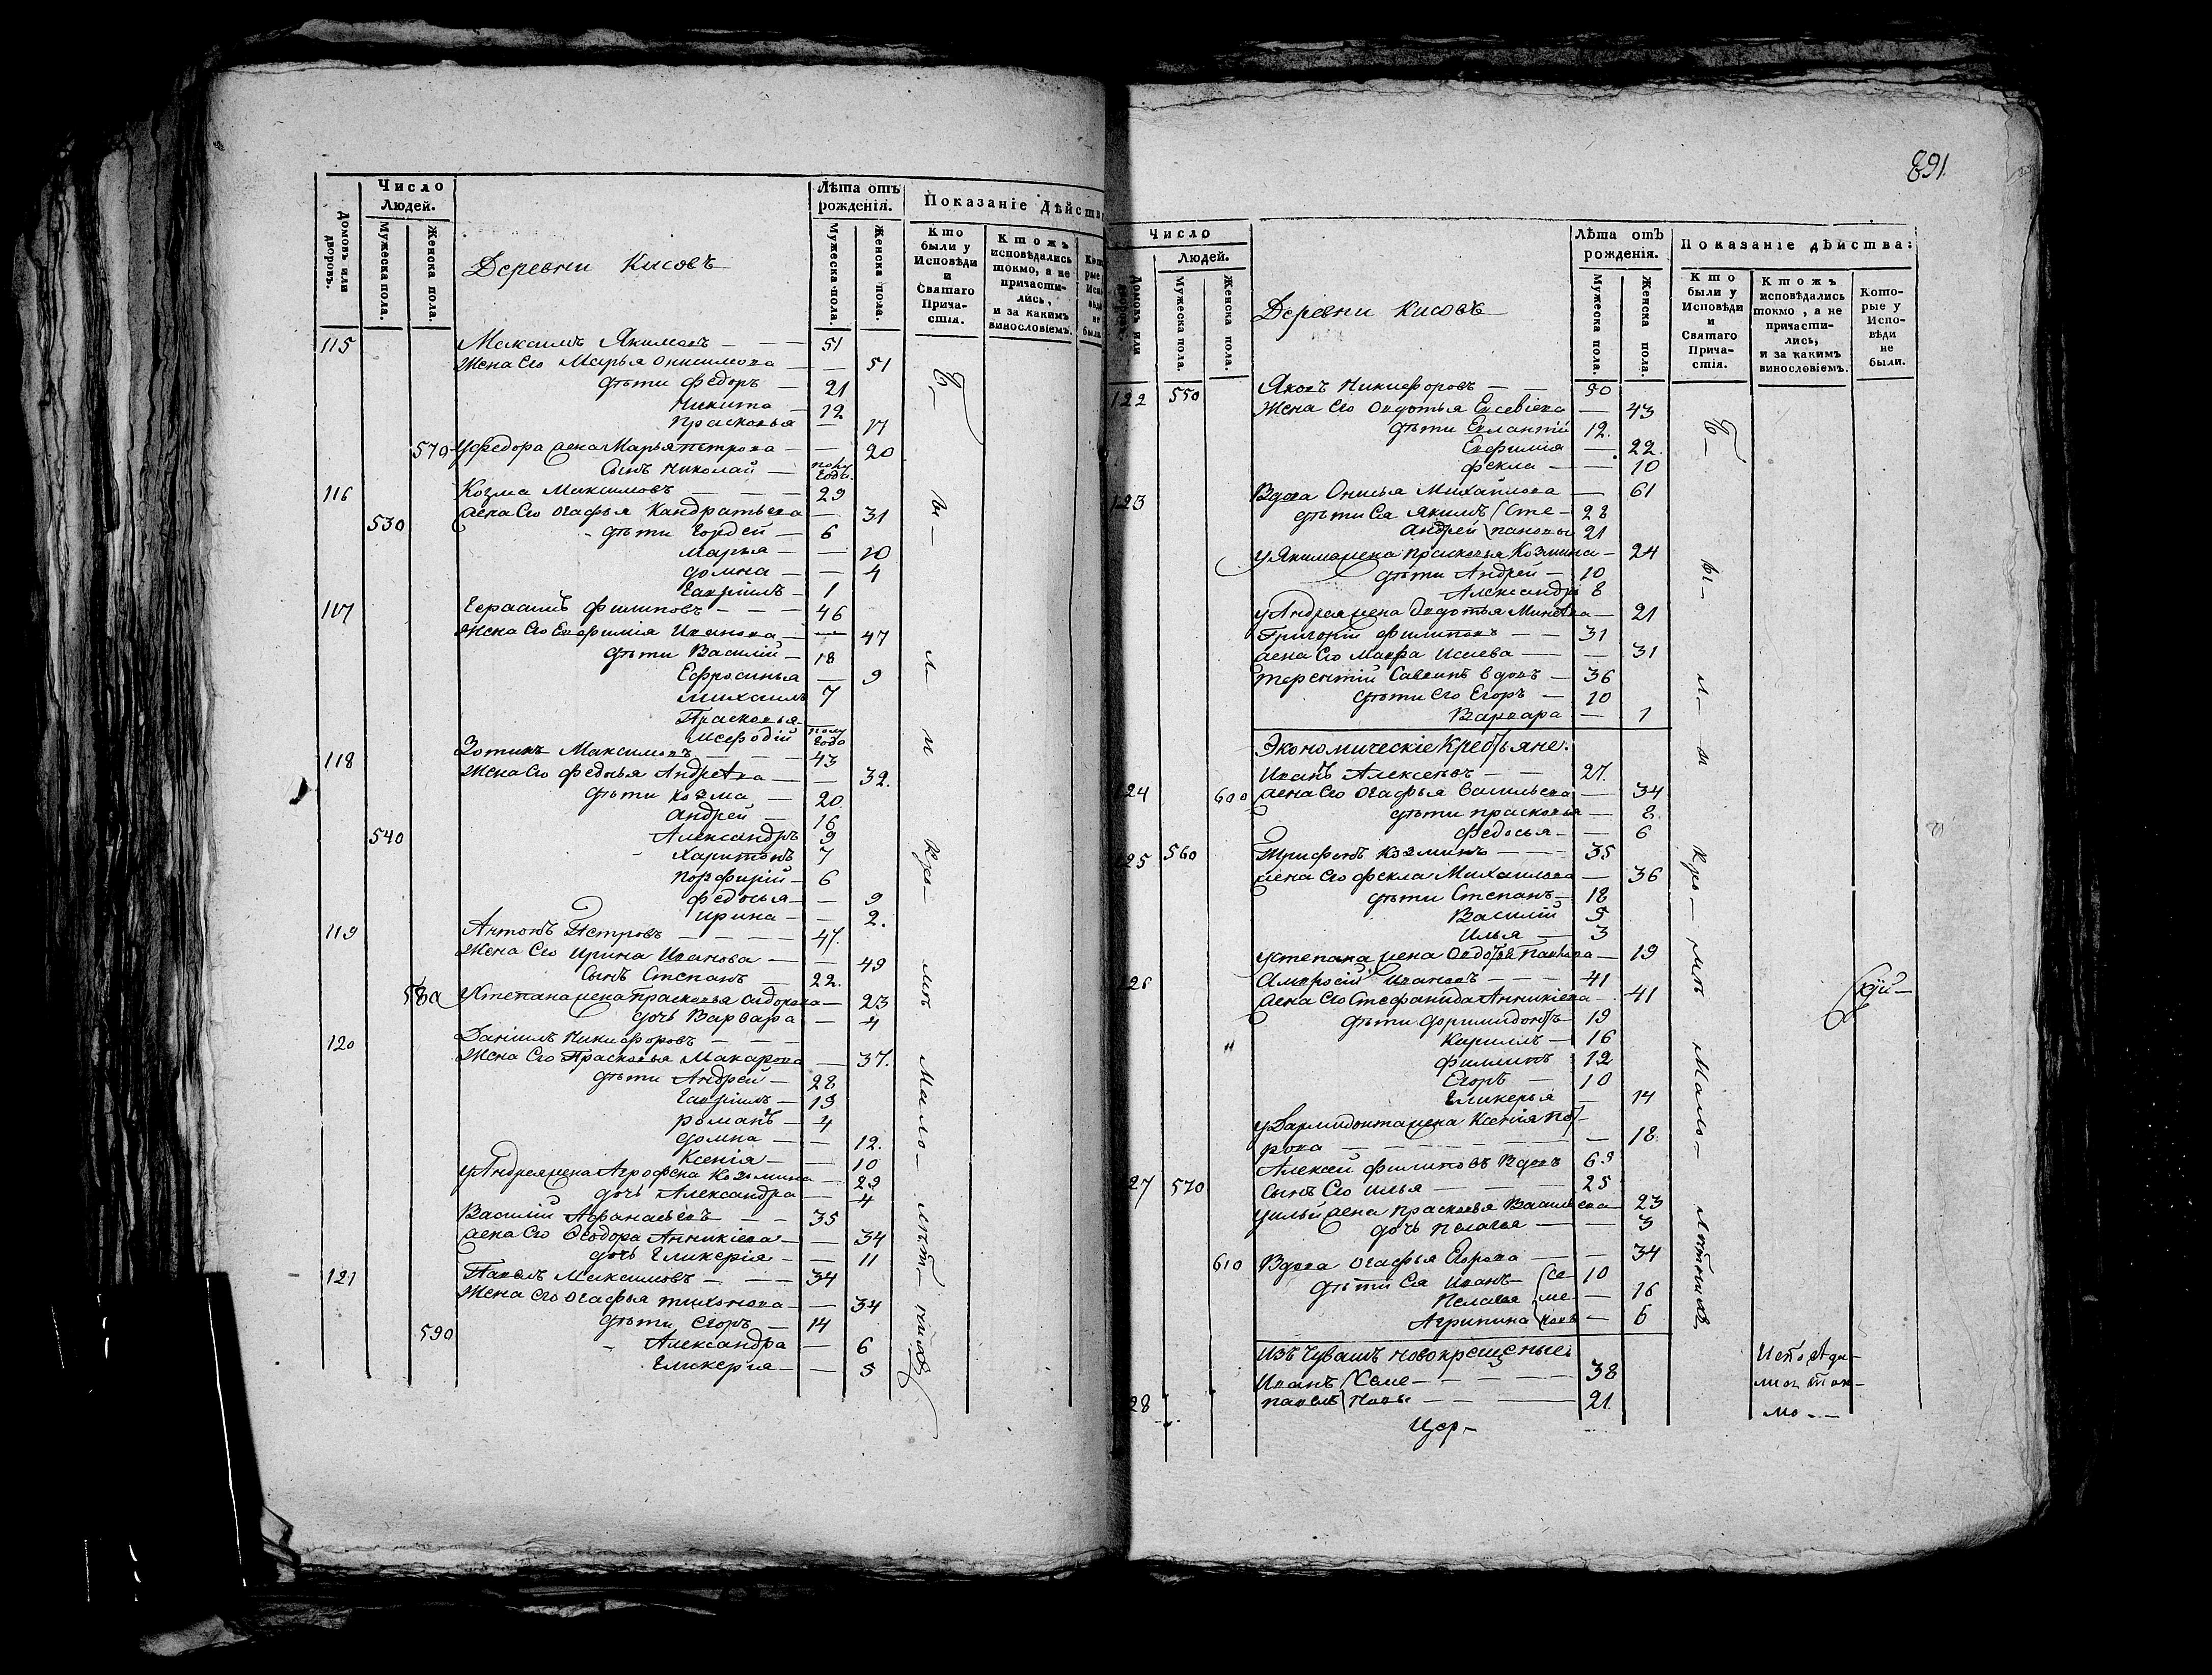 Число
Людей.
Домовъ или дворовъ.
Мужеска пола.
Женска пола.
Деревни Кисовъ
Лѣта отъ рожденія.
Мужеска пола.
Женска пола.
Показаніе Дѣйств
Кто были у Исповѣди и Святаго Прича- стія.
Ктожъ исповѣдались токмо, а не причасти- лись, и за какимъ винословіемъ.
115 Максимъ Якимовъ — 51
Жена Его Марья Онисимова — 51
дѣти Федоръ — 21
Никита — 12
Прасковья — 17
570 У Федора жена Марья Петрова — 20
Сынъ Николай — полу года
116 Козма Максимовъ — 29
530 жена Его Огафья Кандратьева — 31
дѣти Гордей — 6
Марья — 10
Домна — 4
Гаврiилъ — 1
117 Герасимъ Филиповъ — 46
Жена Его Евфимія Иванова — 47
дѣти Василій — 18
Ефросинья — 9
Михаилъ 7
Прасковья
Мефодій полу года
118 Зотикъ Максимовъ — 43
Жена Его Федосья Андреева — 32.
дѣти Козма — 20
Андрей — 16
540 Александръ 9
Харитонъ 7
Порфирій — 6
Федосья — 9
Ирина — 2.
119 Антонъ Петровъ — 47.
Жена Его Ирина Иванова — 49
Сынъ Степанъ — 22.
580 У Степана жена Прасковья Сидорова — 23
дочь Варвара — 4
120 Даніилъ Никифоровъ — — —
Жена Его Прасковья Макарова — 37.
дѣти Андрей — 28
Гаврiилъ — 19
Романъ — 4
Домна — 12.
Ксенія — 10
У Андрея жена Агрофена Козмина — 29
дочь Александра — 4
Василій Афанасьевъ — 35
жена Его Феодора Аникіева — 34
дочь Гликерія — 11
121 Павелъ Максимовъ — 34
Жена Его Огафья Тихонова — 34
дѣти Егоръ — 14
590 Александра — 6
Гликерія — 5
Б— ы— л— и
891.
Число
Людей.
Мужеска пола.
Женска пола.
Деревни Кисовъ
Лѣта отъ рожденія.
Мужеска пола.
Женска пола.
Показаніе дѣйства:
Кто были у Исповѣди и Святаго Прича- стія.
Ктожъ исповѣдались токмо, а не причасти- лись, и за какимъ винословіемъ.
Кото- рые у Испо- вѣди не были.
122 550 Яковъ Никифоровъ — 50
Жена Его Овдотья Евсевіева — 43
дѣти Евлантій 12.
Евфимія — 22.
Фекла — 10
123 Вдова Онисья Михайлова — 61
дѣти Ея Якимъ (Сте- 28
Андрей (пановы 21
У Якима жена Прасковья Козмина — 24
дѣти Андрей — 10
Александръ 8
У Андрея жена Овдотья Минеева — 21
Григорій Филиповъ — 31
жена Его Мавра Исаева — 31
Терентій Саввинъ вдовъ — 36
дѣти Его Егоръ — 10
Варвара — 1
Экономическіе Крестьяне:
Иванъ Алексеевъ — 27.
124 600 жена Его Огафья Васильева — 34
дѣти Прасковья — 8
Федосья — 6
125 560 Трифонъ Козминъ — 35
жена Его Фекла Михайлова — 36
дѣти Степанъ — 18
Василій 5
Илья — 3
У Степана жена Овдотья Павлова — 19
126 Амвросій Ивановъ — 41
жена Его Стефанида Аникіева — 41
дѣти Доримидонтъ — 19
Кирилъ — 16
" Филипъ 12
Егоръ — 10
Гликерья — 14
У Дармидонта жена Ксенія Пет-
рова — 18.
Алексей Филиповъ Вдовъ 69
127 570 Сынъ Его Илья — 25
У Ильи жена Прасковья Васильева 23
дочь Пелагея — 3
610 Вдова Огафья Егорова — 34
дѣти Ея Иванъ (Се- 10
Пелагея (ме- — 16
Агрипина (новы — 6
Изъ Чувашъ новокрещеные:
Иванъ (Семе- — 38
128 Павелъ (новы — 21.
Цер-
Б— ы— л— и
Исповѣда-
лись ток-
мо.—